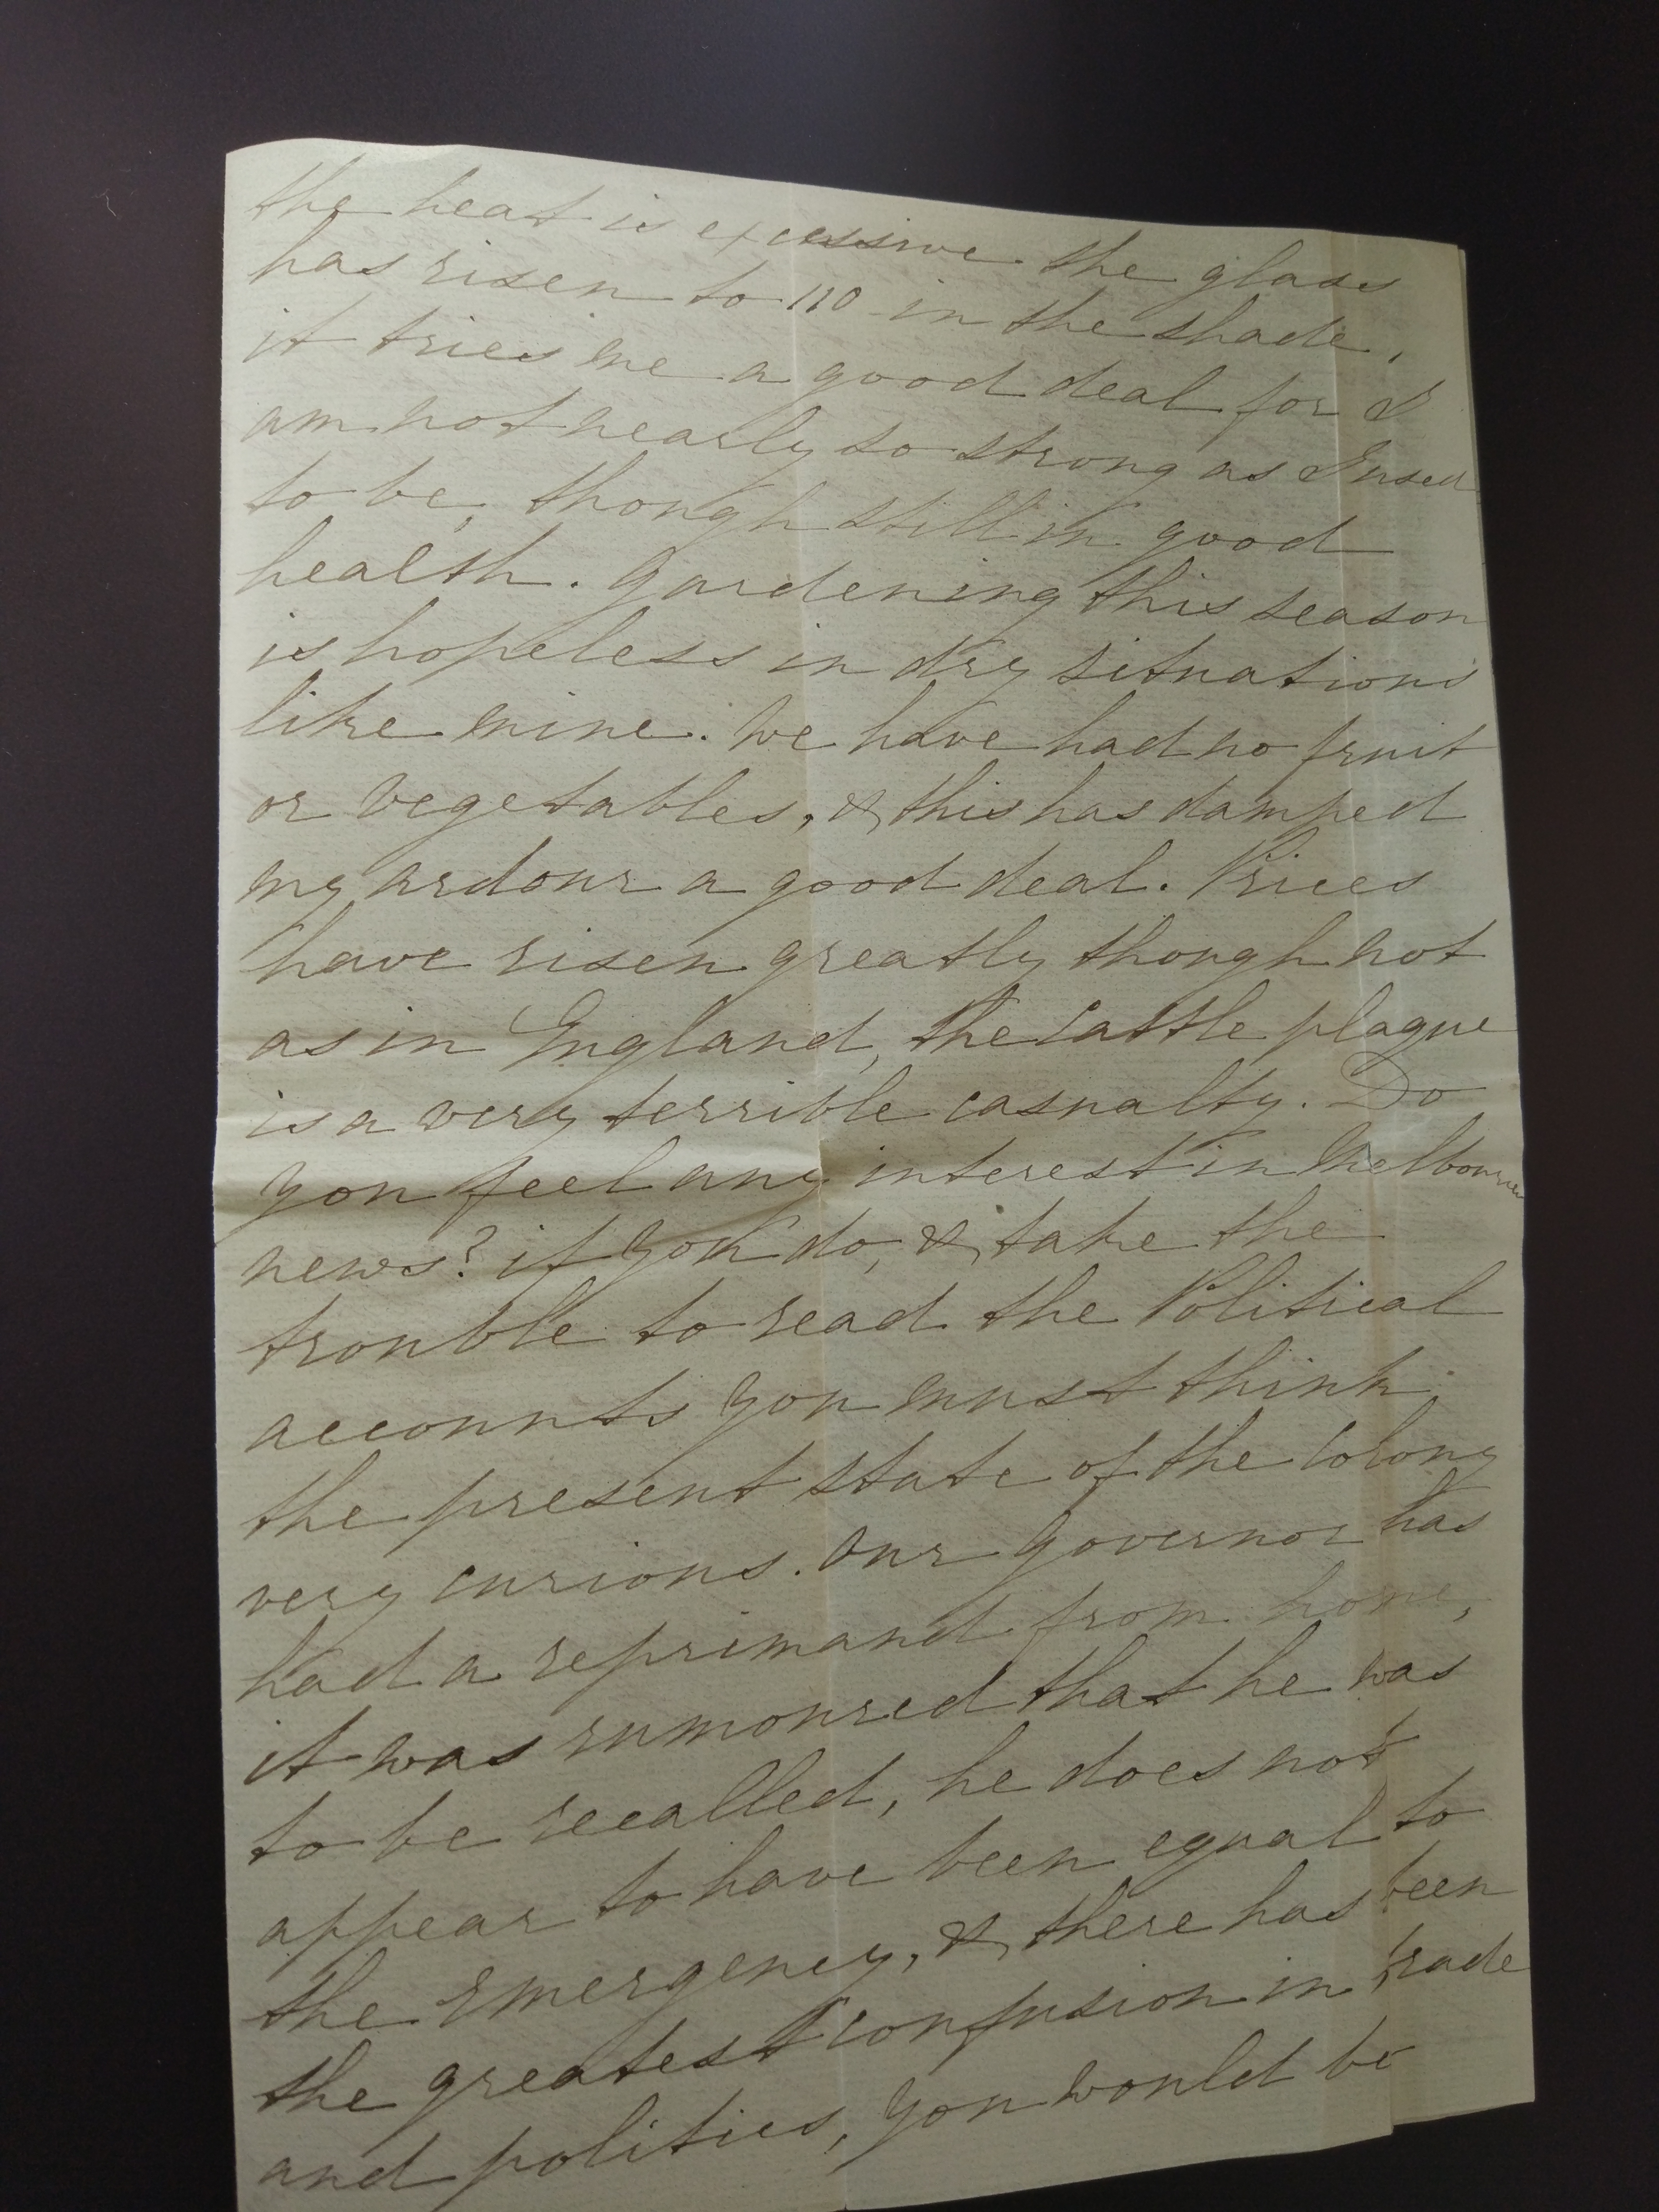 the heat is excessive the glass
has risen to 110 in the shade,
it tries me a good deal for I
am not nearly so strong as I used
to be, though still in good
health. Gardening this season
is hopeless in dry situations
like mine. We have had no fruit
or vegetables, & this has damped
my ardour a good deal. Prices
have risen greatly though not
as in England, the Cattle plague
is a very terrible casualty. Do
you feel any interest in Melbourne
news? if you do, & take the
trouble to read the Political
accounts you must think
the present state of the Colony
very curious. Our Governor has
had a reprimand from home,
it was rumoured that he was
to be recalled, he does not
appear to have been equal to
the emergency, & there has been
the greatest confusion in trade
and politics, you would be